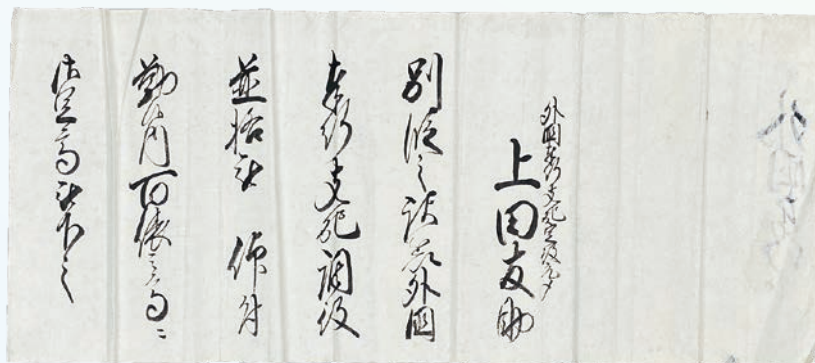 外国奉行支配定役元〆
上田友助
別段之訳を以外国
奉行支配調役
並格被 仰付
勤候内百俵之高ニ
御足高被下之